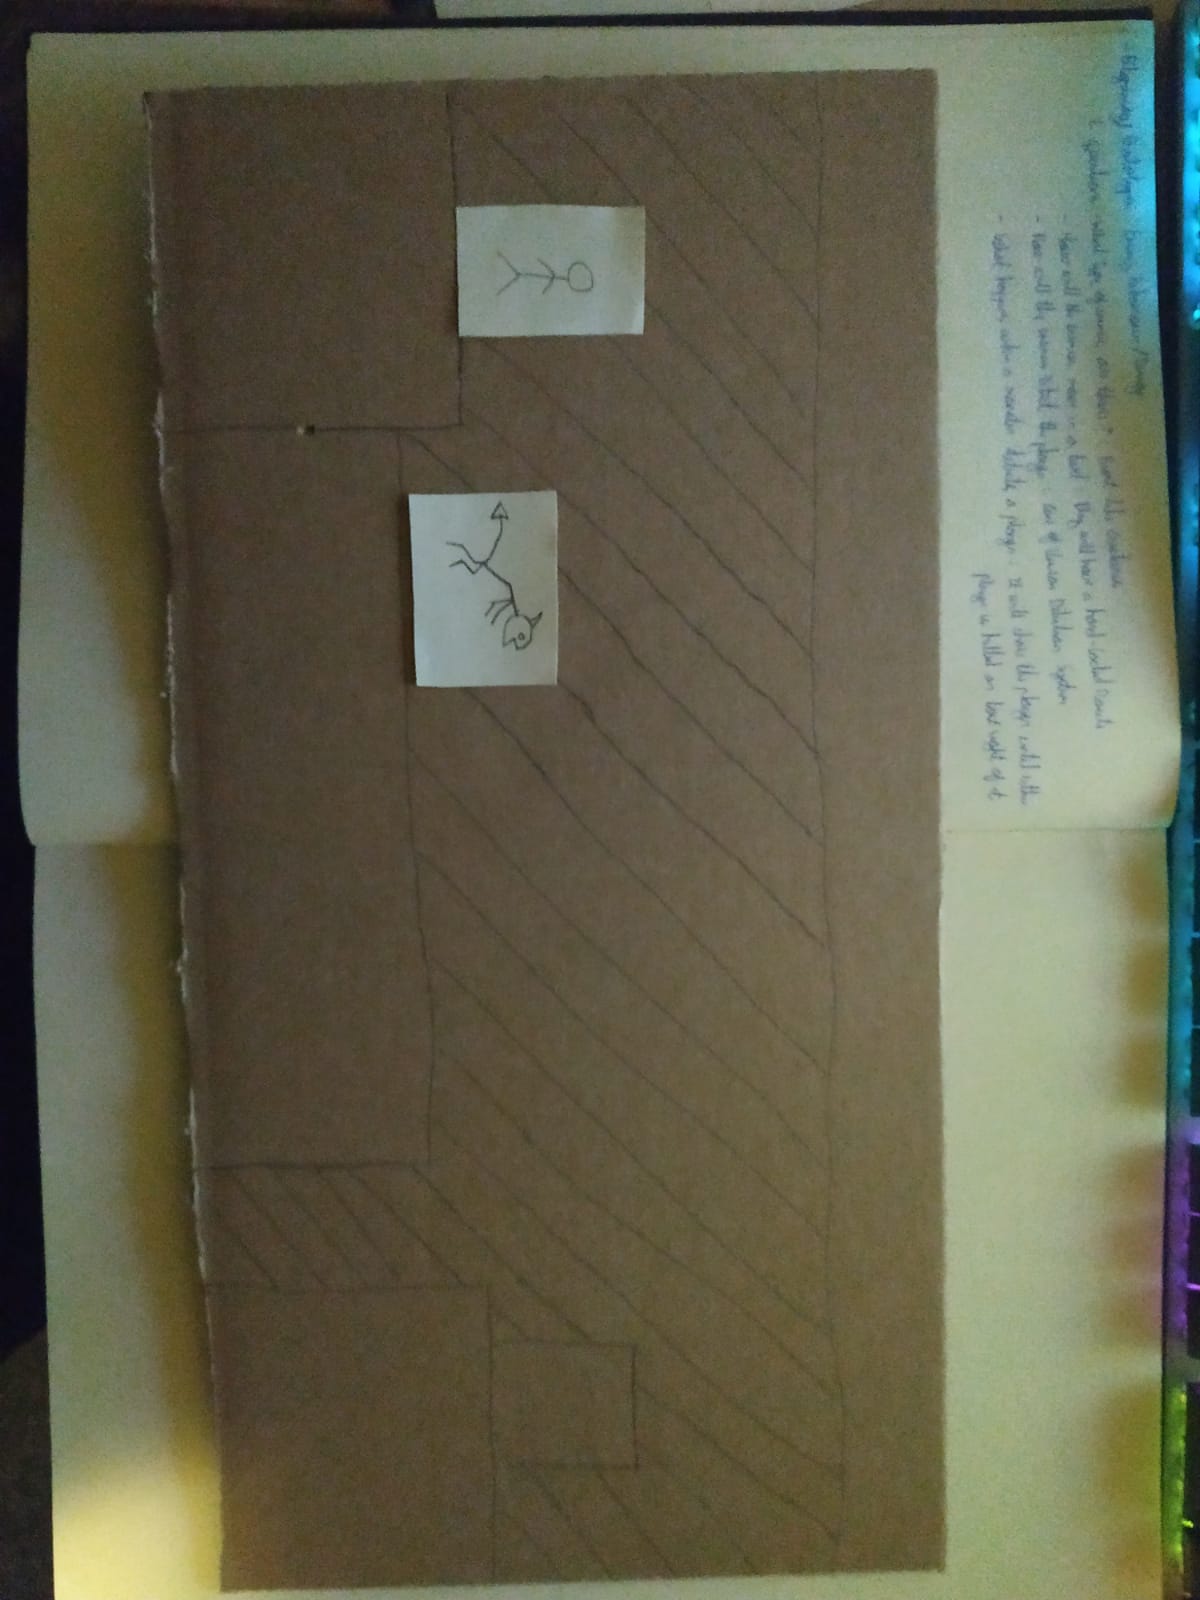 Questions: - What type of enemies are there? : Beast-like creatures
- How will the enemies move in a level : They will have a hard-coded
- How will the enemies detect the player : of Vision Detection System
- What happens when a monster detects a player : It will chase the player until either
player is killed or lost sight of it